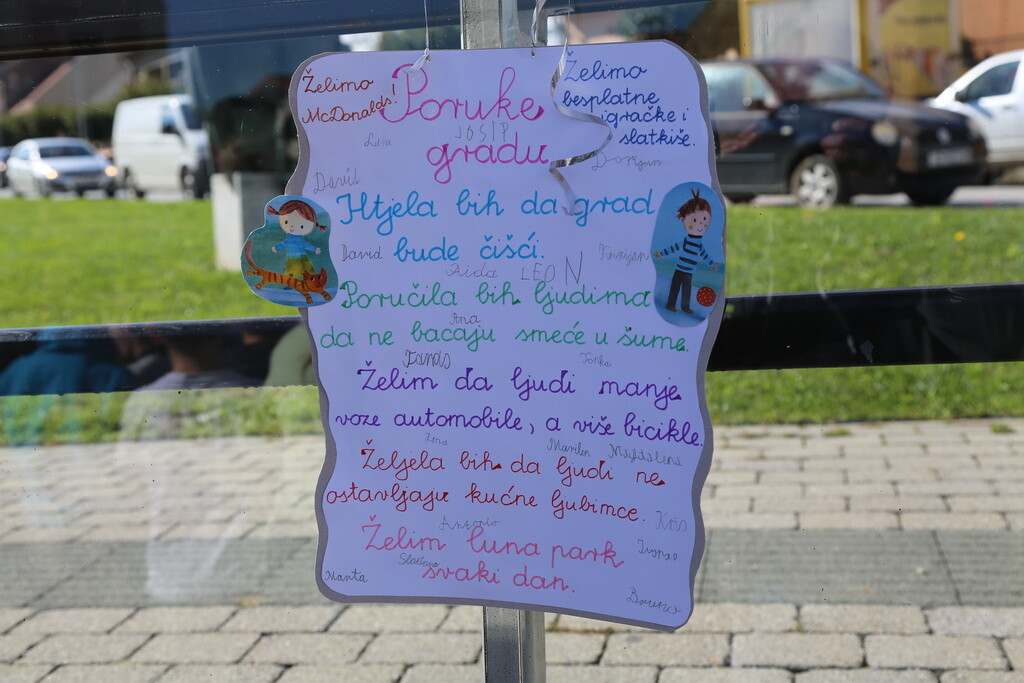 Želimo
McDonalds!
Poruke
gradu
Želimo
besplatne
igračke i
slatkiše.
JOSIP
David
Htjela bih da grad
David
bude čišći.
Kristijan
Aida LEON
Poručila bih ljudima
Ana
da ne bacaju smeće u šume.
Tonka
Želim da ljudi manje
voze automobile, a više bicikle.
Ema
Marilen Magdalena
Željela bih da ljudi ne
ostavljaju kućne ljubimce.
Kris
Antonio
Želim luna park
svaki dan.
Marta